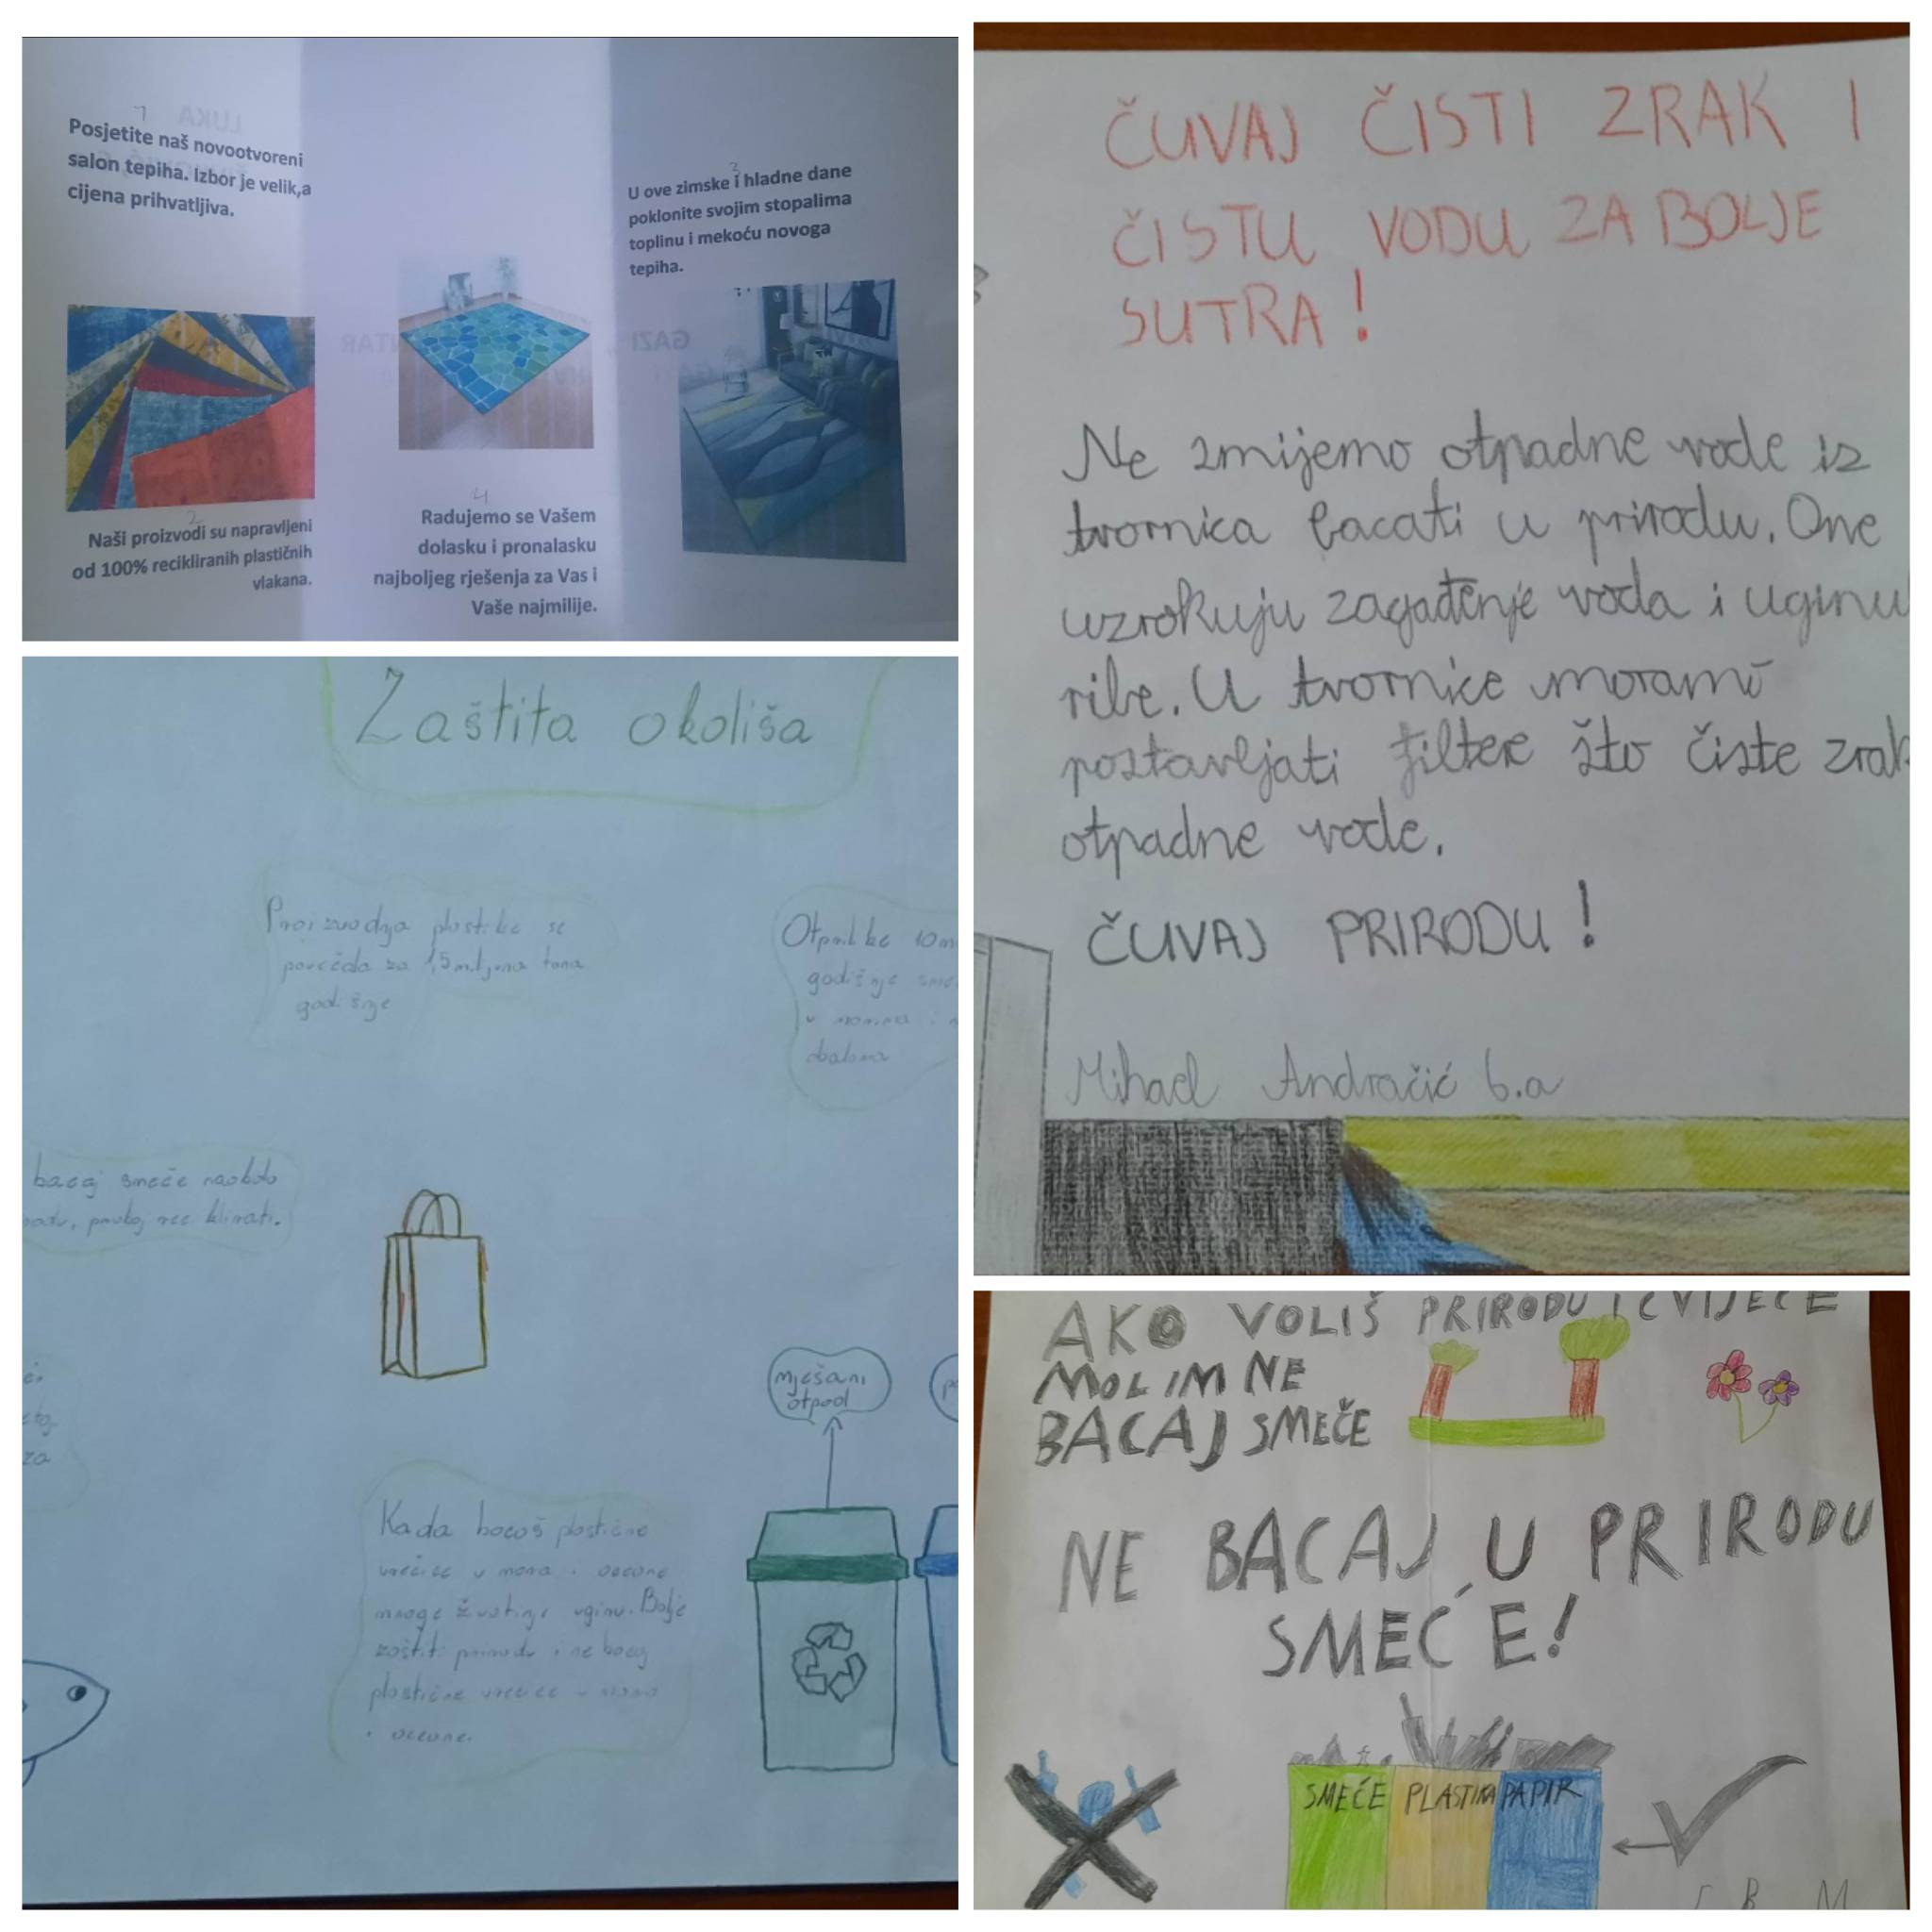 Posjetite naš novootvoreni
salon tepiha. Izbor je velik,a
cijena prihvatljiva.
2
Naši proizvodi su napravljeni
od 100% recikliranih plastičnih
vlakana.
3
U ove zimske i hladne dane
poklonite svojim stopalima
toplinu i mekoću novoga
tepiha.
4
Radujemo se Vašem
dolasku i pronalasku
najboljeg rješenja za Vas i
Vaše najmilije.
LUKA
GAZI
ČUVAJ ČISTI ZRAK I
ČISTU VODU ZA BOLJE
SUTRA!
Ne zmijemo otpadne vode iz
tvornica bacati u prirodu. One
uzrokuju zagađenje voda i uginu
ribe. U tvornice moramo
postavljati filtere što čiste zrak
otpadne vode.
ČUVAJ PRIRODU!
Mihael Andračić 6.a
Zaštita okoliša
Proizvodnja plastike se
povećala za 1,5 miljona tona
godišnje
Otprilike 10 m
godišnje
u morima i
obalama
bacaj smeće naokolo
probaj reciklirati.
za
mješani
otpad
Kada bacaš plastične
vrećice u mora i oceane
mnoge životinje uginu. Bolje
zaštiti prirodu i ne bacaj
plastične vrećice u mora
i oceane.
AKO VOLIŠ PRIRODU I CVIJEĆE
MOLIM NE
BACAJ SMEČE
NE BACAJ U PRIRODU
SMEĆE!
SMEĆE PLASTIKA PAPIR